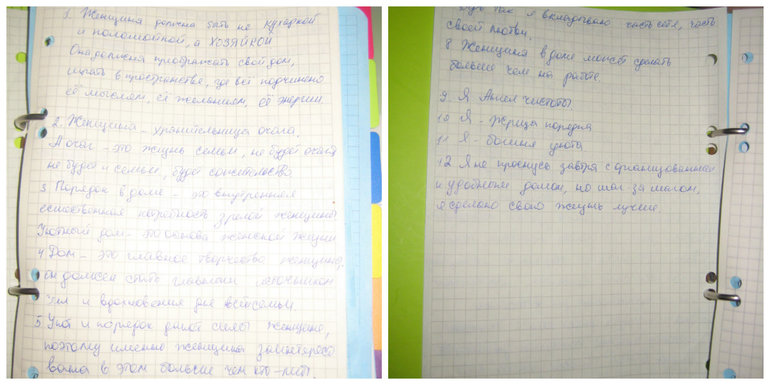 1. Женщина должна быть не кухаркой
и поломойкой, а ХОЗЯЙКОЙ
Она должна чувствовать свой дом,
в пространстве, где всё подчинено
её мыслям, её желаниям, её энергии
2. Женщина - хранительница очага,
А очаг - это жизнь семьи, не будет очага
не будет и семьи, будет сожительство
3. Порядок в доме - это внутренняя
естественная потребность зрелой женщины
Уютный дом - это основа женской жизни
4 Дом - это главное творчество женщины,
он должен стать главным источником
сил и вдохновения для всей семьи
5 Уют и порядок дают силы женщине,
поэтому именно женщина заинтересо
вана в этом больше чем кто-либо,
я вкладываю часть себя, часть
своей любви.
8 Женщина в доме может сделать
больше чем на работе
9. Я Ангел чистоты
10 Я - Жрица порядка
11 Я - богиня уюта
12 Я не проснусь завтра с организованным
и удобным домом, но шаг за шагом,
я сделаю свою жизнь лучше